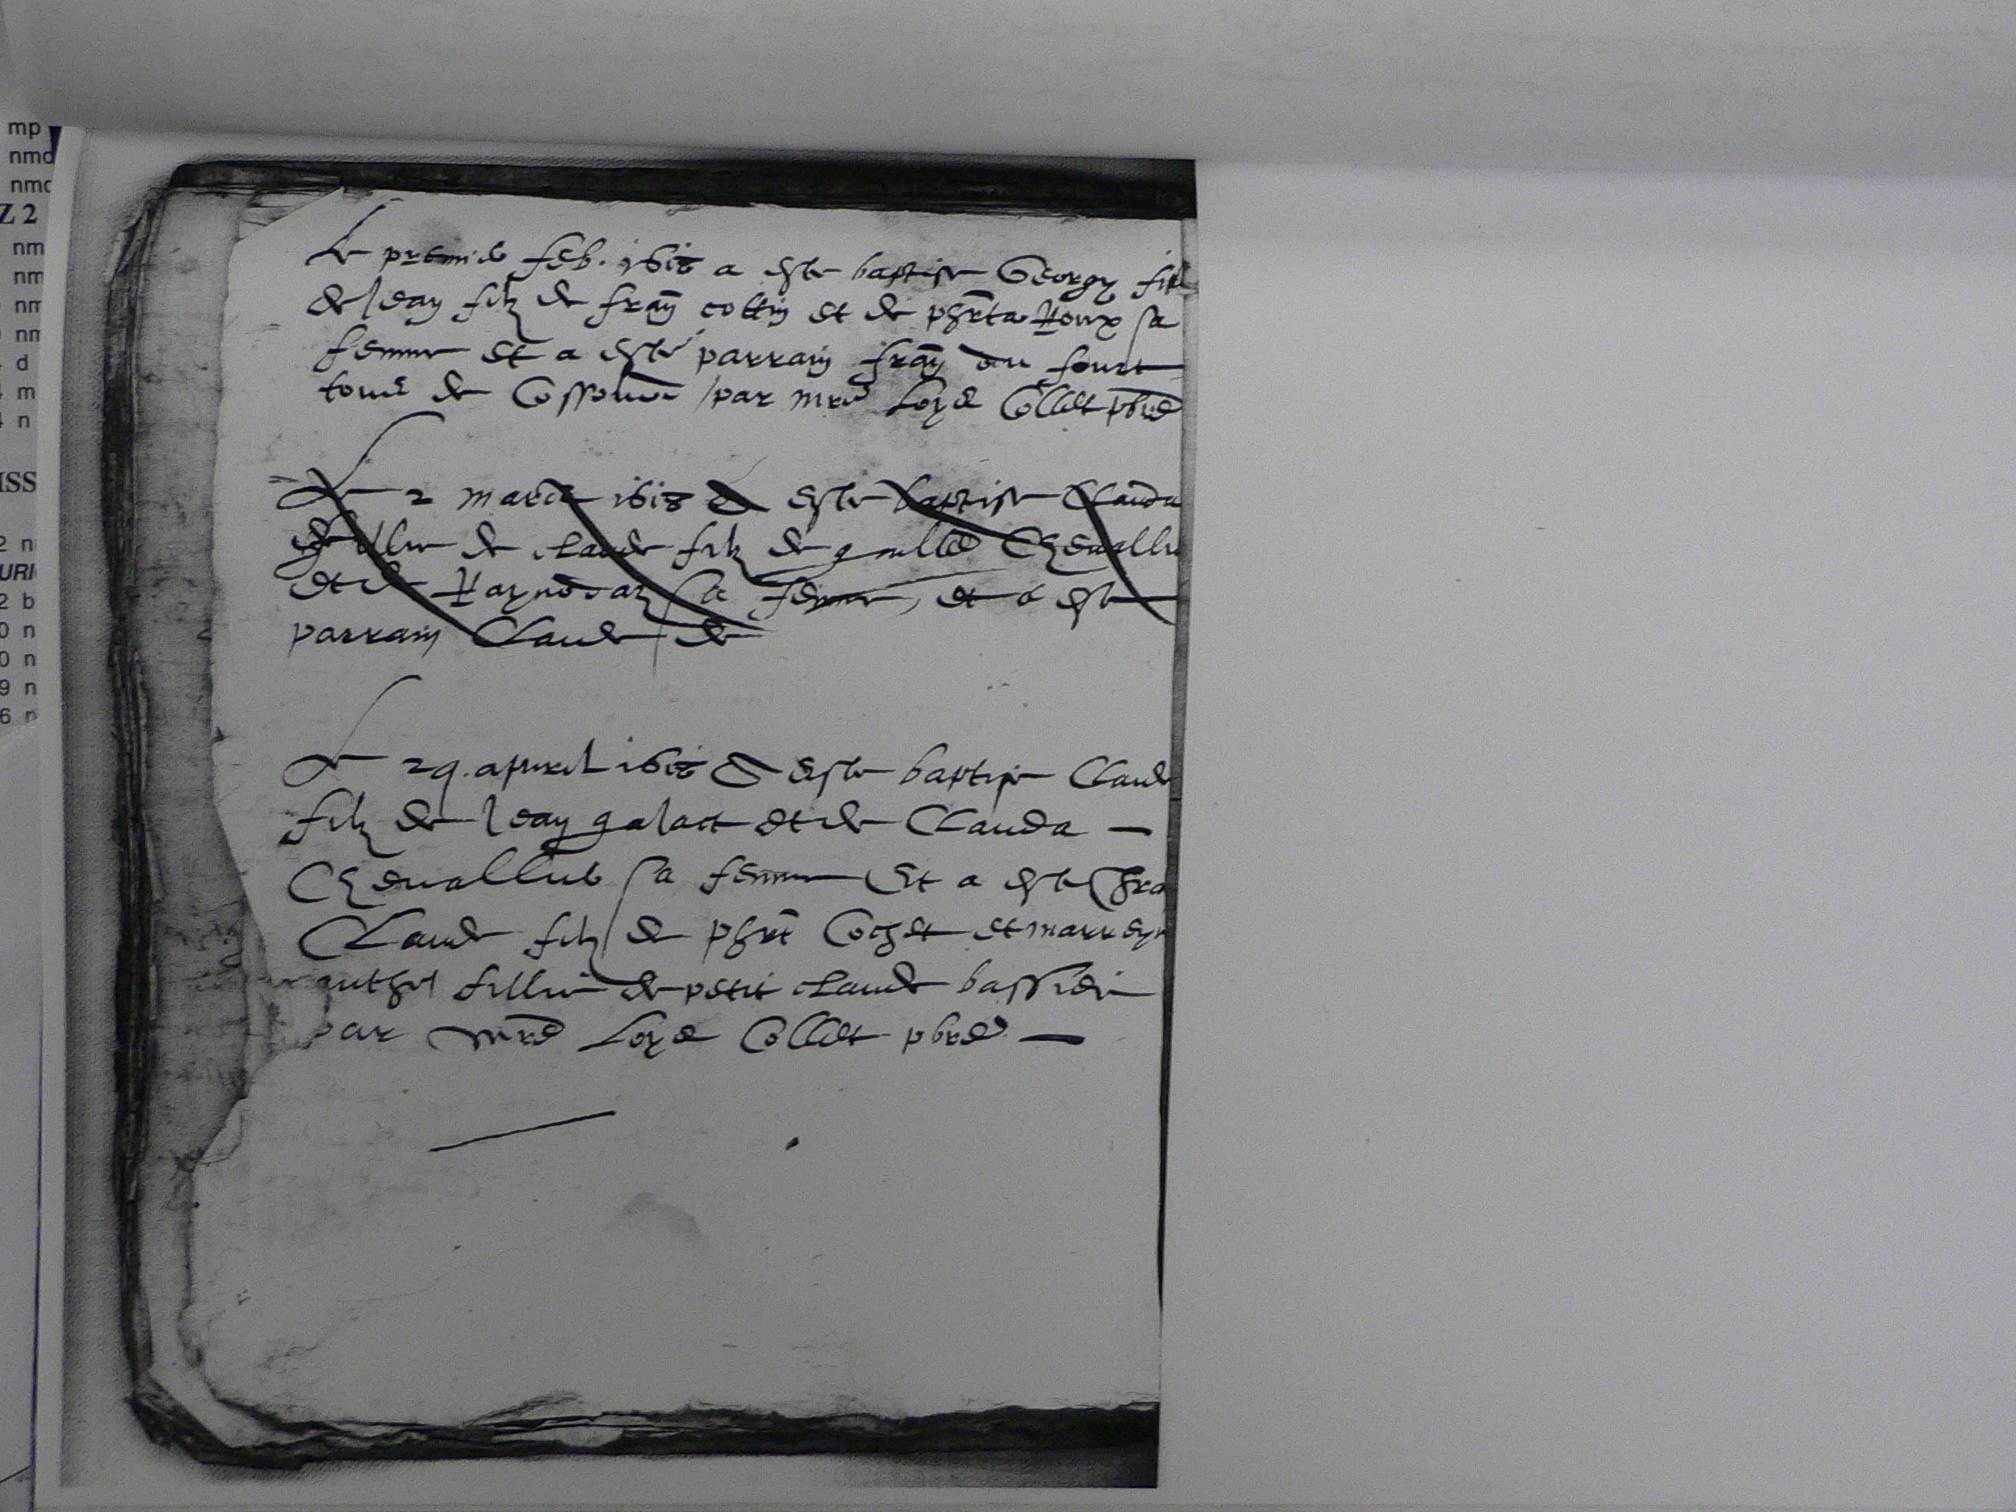 mp
nmd
nmd
Z 2
nm
nm
nm
nm
d
m
4 n
ISS
2 n
URI
2 b
0 n
0 n
9 n
6 n
Le premie feb. 1618 a este baptise George fil
de Jean filz de fran cottin et de phrta Roux sa
femme et a este parrain fran du four
de Cossone par mre Loys Collet pbre
Le 2 mars 1618 a este baptise Clauda
fillie de Claude filz de Chevallie
et de sa femme et a este
parrain Claude de
Le 29. apvril 1618 a este baptise Claude
filz de Jean galact et de Clauda —
Chevallier sa femme Et a este
Claude filz de phrt Cochet et marreyn
fillie de petit Claude bassidi
par mre Loys Collet pbre —